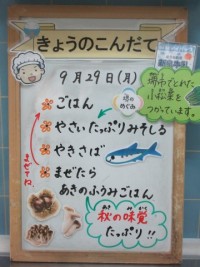 きょうのこんだて
9月29日(月)
堺市でとれた
小松菜を
つかっています。
ごはん
堺のめぐみ
やさいたっぷりみそしる
やきさば
まぜたら
あきのふうみごはん
まぜてね
秋の味覚
たっぷり!!